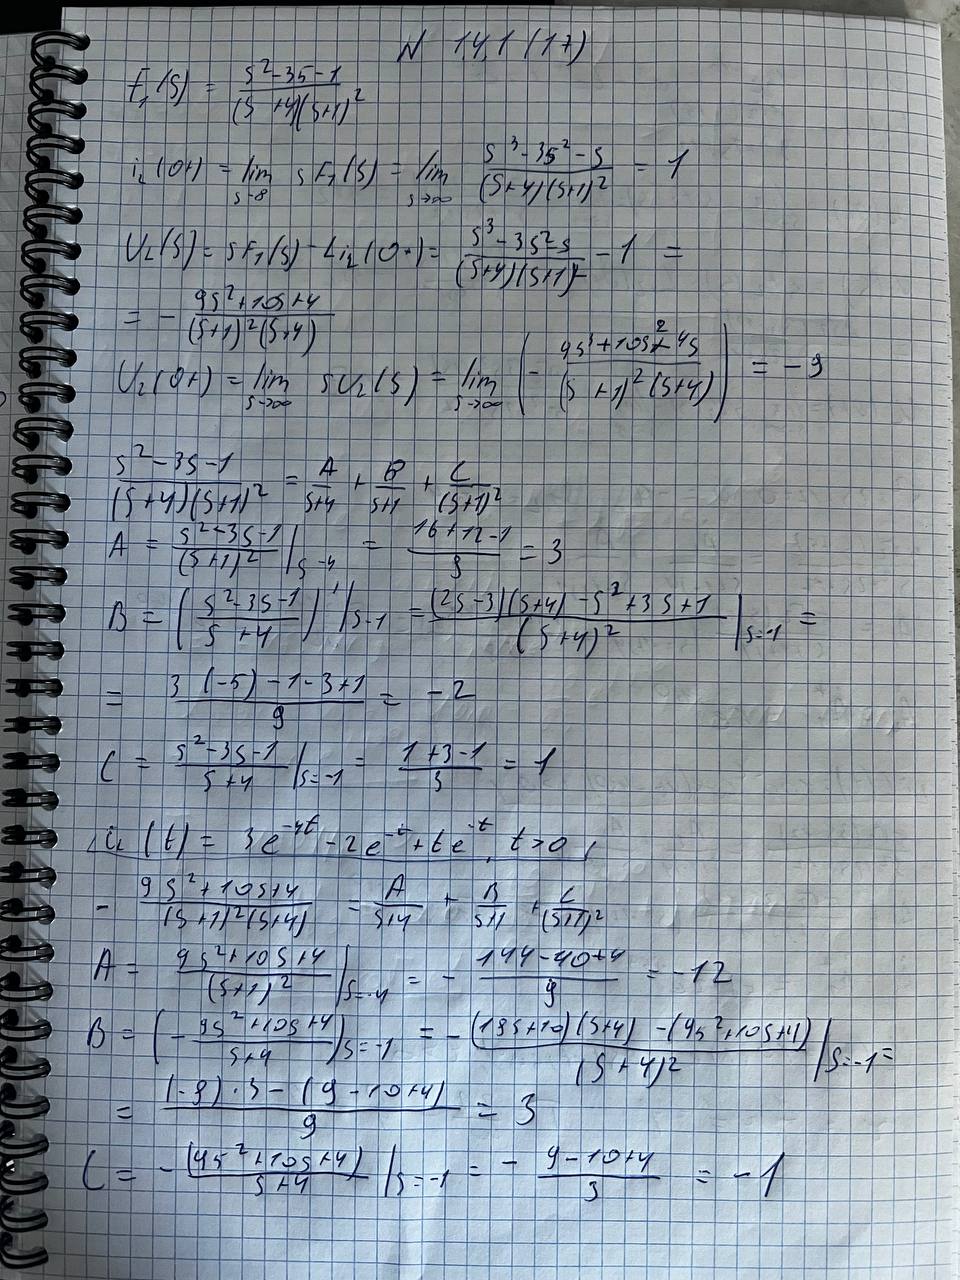 N 1.4.1 (17)
F₁(s) = (s²-3s-1)/((s+4)(s+1)²)
i₂(0+) = lim_{s→8} sF₁(s) = lim_{s→∞} (s³-3s²-s)/((s+4)(s+1)²) = 1
U₂(s) = sF₁(s) - Li₂(0+) = (s³-3s²s)/((s+4)(s+1)²) - 1 =
= - (9s²+10s+4)/((s+1)²(s+4))
U₂(0+) = lim_{s→∞} sU₂(s) = lim_{s→∞} (- (9s³+10s²+4s)/((s+1)²(s+4))) = -9
(s²-3s-1)/((s+4)(s+1)²) = A/(s+4) + B/(s+1) + C/(s+1)²
A = (s²-3s-1)/(s+1)² |s-4 = (16+12-1)/9 = 3
B = ((s²-3s-1)/(s+4))' |s-1 = ((2s-3)(s+4)-s²+3s+1)/(s+4)² |s=-1 =
= (3(-5)-1-3+1)/9 = -2
C = (s²-3s-1)/(s+4) |s=-1 = (1+3-1)/3 = 1
i₂(t) = 3e^{-4t} - 2e^{-t} + te^{-t}, t>0
- (9s²+10s+4)/((s+1)²(s+4)) = A/(s+4) + B/(s+1) + C/(s+1)²
A = (9s²+10s+4)/(s+1)² |s=-4 = - (144-40+4)/9 = -12
B = (- (9s²+10s+4)/(s+4)) |s=-1 = - ((18s+10)(s+4)-(9s²+10s+4))/(s+4)² |s=-1 =
= ((-8)·3-(9-10+4))/9 = 3
C = - (9s²+10s+4)/(s+4) |s=-1 = - (9-10+4)/3 = -1